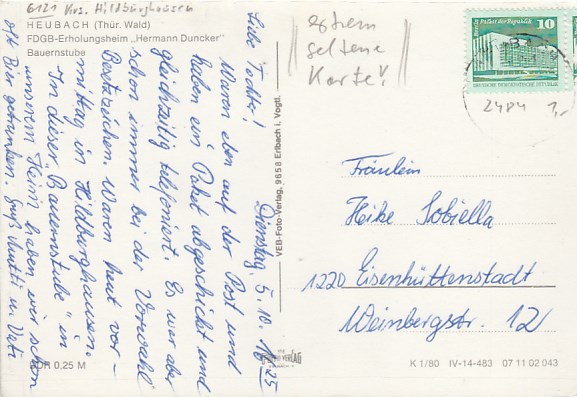 6121 Krs. Hildburghausen
HEUBACH (Thür. Wald)
FDGB-Erholungsheim „Hermann Duncker"
Bauernstube
Dienstag, 5. 10. 
Liebe Tochter!
Waren eben auf der Post und
haben ein Paket abgeschickt und
gleichzeitig telefoniert. Es war aber
schon immer bei der Vorwahl
Besetzzeichen. Waren heut vor-
mittag in Hildburghausen.
In dieser "Bauernstube" in
unserem Heim haben wir schon
oft Bier getrunken. Gruß Mutti u. Vati
DDR 0,25 M
VEB-Foto-Verlag, 9658 Erlbach i. Vogtl.
extrem
seltene
Karte!
Palast der Republik
10
DEUTSCHE DEMOKRATISCHE REPUBLIK
2484
1,-
Fräulein
Heike Sobiella
1220 Eisenhüttenstadt
Weinbergstr. 12
VERLAG
K 1/80 IV-14-483 07 11 02 043